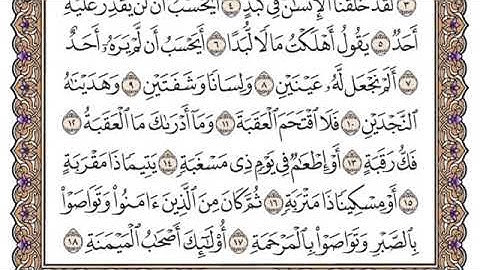 ٣ لَقَدْ خَلَقْنَا الْإِنسَانَ فِي كَبَدٍ ٤ أَيَحْسَبُ أَن لَّن يَقْدِرَ عَلَيْهِ
أَحَدٌ ٥ يَقُولُ أَهْلَكْتُ مَالًا لُّبَدًا ٦ أَيَحْسَبُ أَن لَّمْ يَرَهُۥ أَحَدٌ
٧ أَلَمْ نَجْعَل لَّهُۥ عَيْنَيْنِ ٨ وَلِسَانًا وَشَفَتَيْنِ ٩ وَهَدَيْنَاهُ
النَّجْدَيْنِ ١٠ فَلَا اقْتَحَمَ الْعَقَبَةَ ١١ وَمَا أَدْرَىٰكَ مَا الْعَقَبَةُ ١٢
فَكُّ رَقَبَةٍ ١٣ أَوْ إِطْعَامٌ فِي يَوْمٍ ذِي مَسْغَبَةٍ ١٤ يَتِيمًا ذَا مَقْرَبَةٍ
١٥ أَوْ مِسْكِينًا ذَا مَتْرَبَةٍ ١٦ ثُمَّ كَانَ مِنَ الَّذِينَ ءَامَنُوا وَتَوَاصَوْا
بِالصَّبْرِ وَتَوَاصَوْا بِالْمَرْحَمَةِ ١٧ أُولَٰئِكَ أَصْحَابُ الْمَيْمَنَةِ ١٨